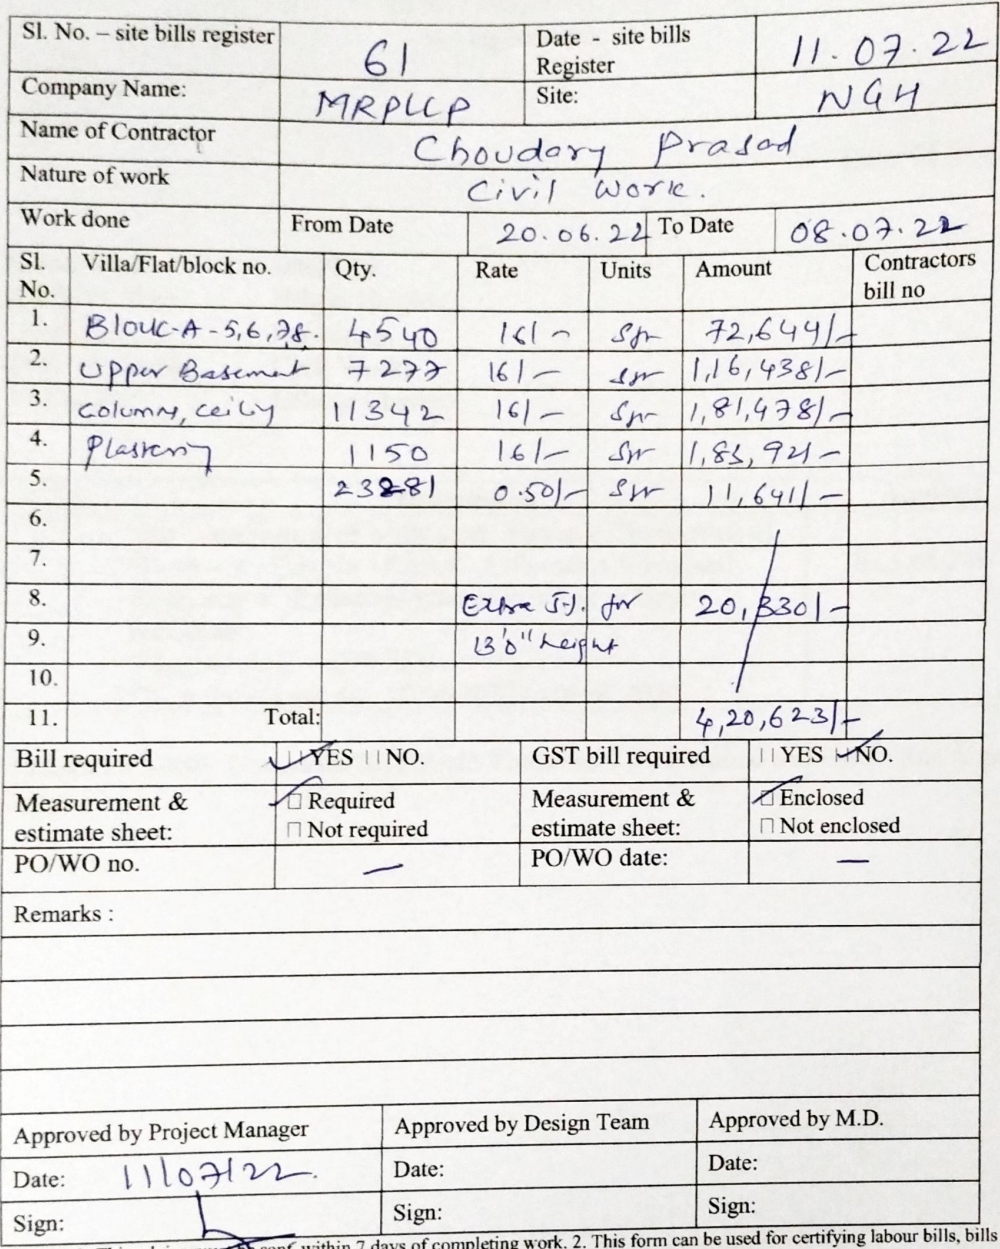 Sl. No. – site bills register 61 Date - site bills Register 11.07.22
Company Name: MRPLLP Site: NGH
Name of Contractor Choudary Prasad
Nature of work Civil Work.
Work done From Date 20.06.22 To Date 08.07.22
Sl. No. Villa/Flat/block no. Qty. Rate Units Amount Contractors bill no
1. Block-A-5,6,7,8. 4540 16/- Sft 72,644/-
2. Upper Basement 7277 16/- Sft 1,16,438/-
3. Columns, ceiling 11342 16/- Sft 1,81,478/-
4. Plastering 1150 16/- Sft
5. 23281 0.50/- Sft 11,641/-
6.
7.
8. Extra 5%. for 20,330/-
9. 13'0" height
10.
11. Total: 4,20,623/-
Bill required YES NO. GST bill required YES NO.
Measurement & estimate sheet: Required Measurement & estimate sheet: Enclosed
Not required Not enclosed
PO/WO no. — PO/WO date: —
Remarks :
Approved by Project Manager Approved by Design Team Approved by M.D.
Date: 11/07/22. Date: Date:
Sign: Sign: Sign:
within 7 days of completing work. 2. This form can be used for certifying labour bills, bills